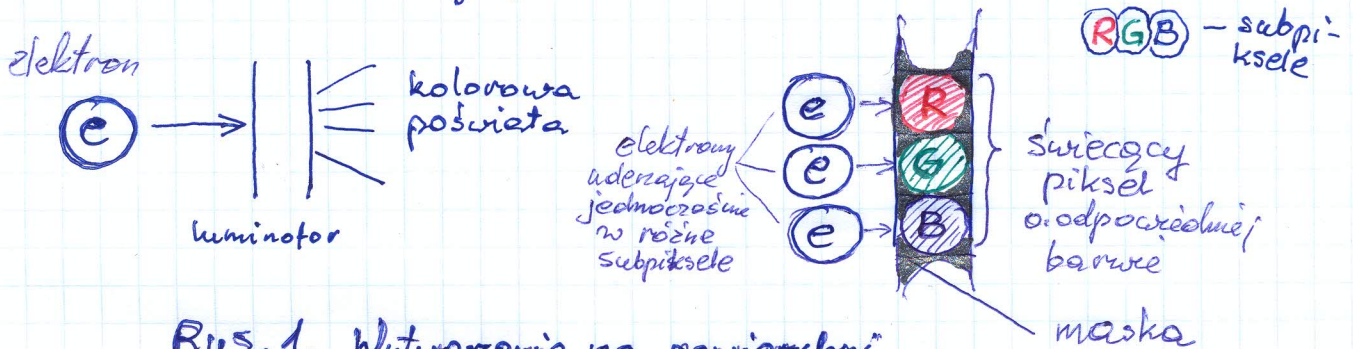 elektron
e
luminofor
kolorowa
poświata
elektrony
uderzające
jednocześnie
w różne
subpiksele
e
e
e
R
G
B
świecący
piksel
o odpowiedniej
barwie
maska
RGB – subpi-
ksele
Rys. 1. Wytwarzanie na powierzchni